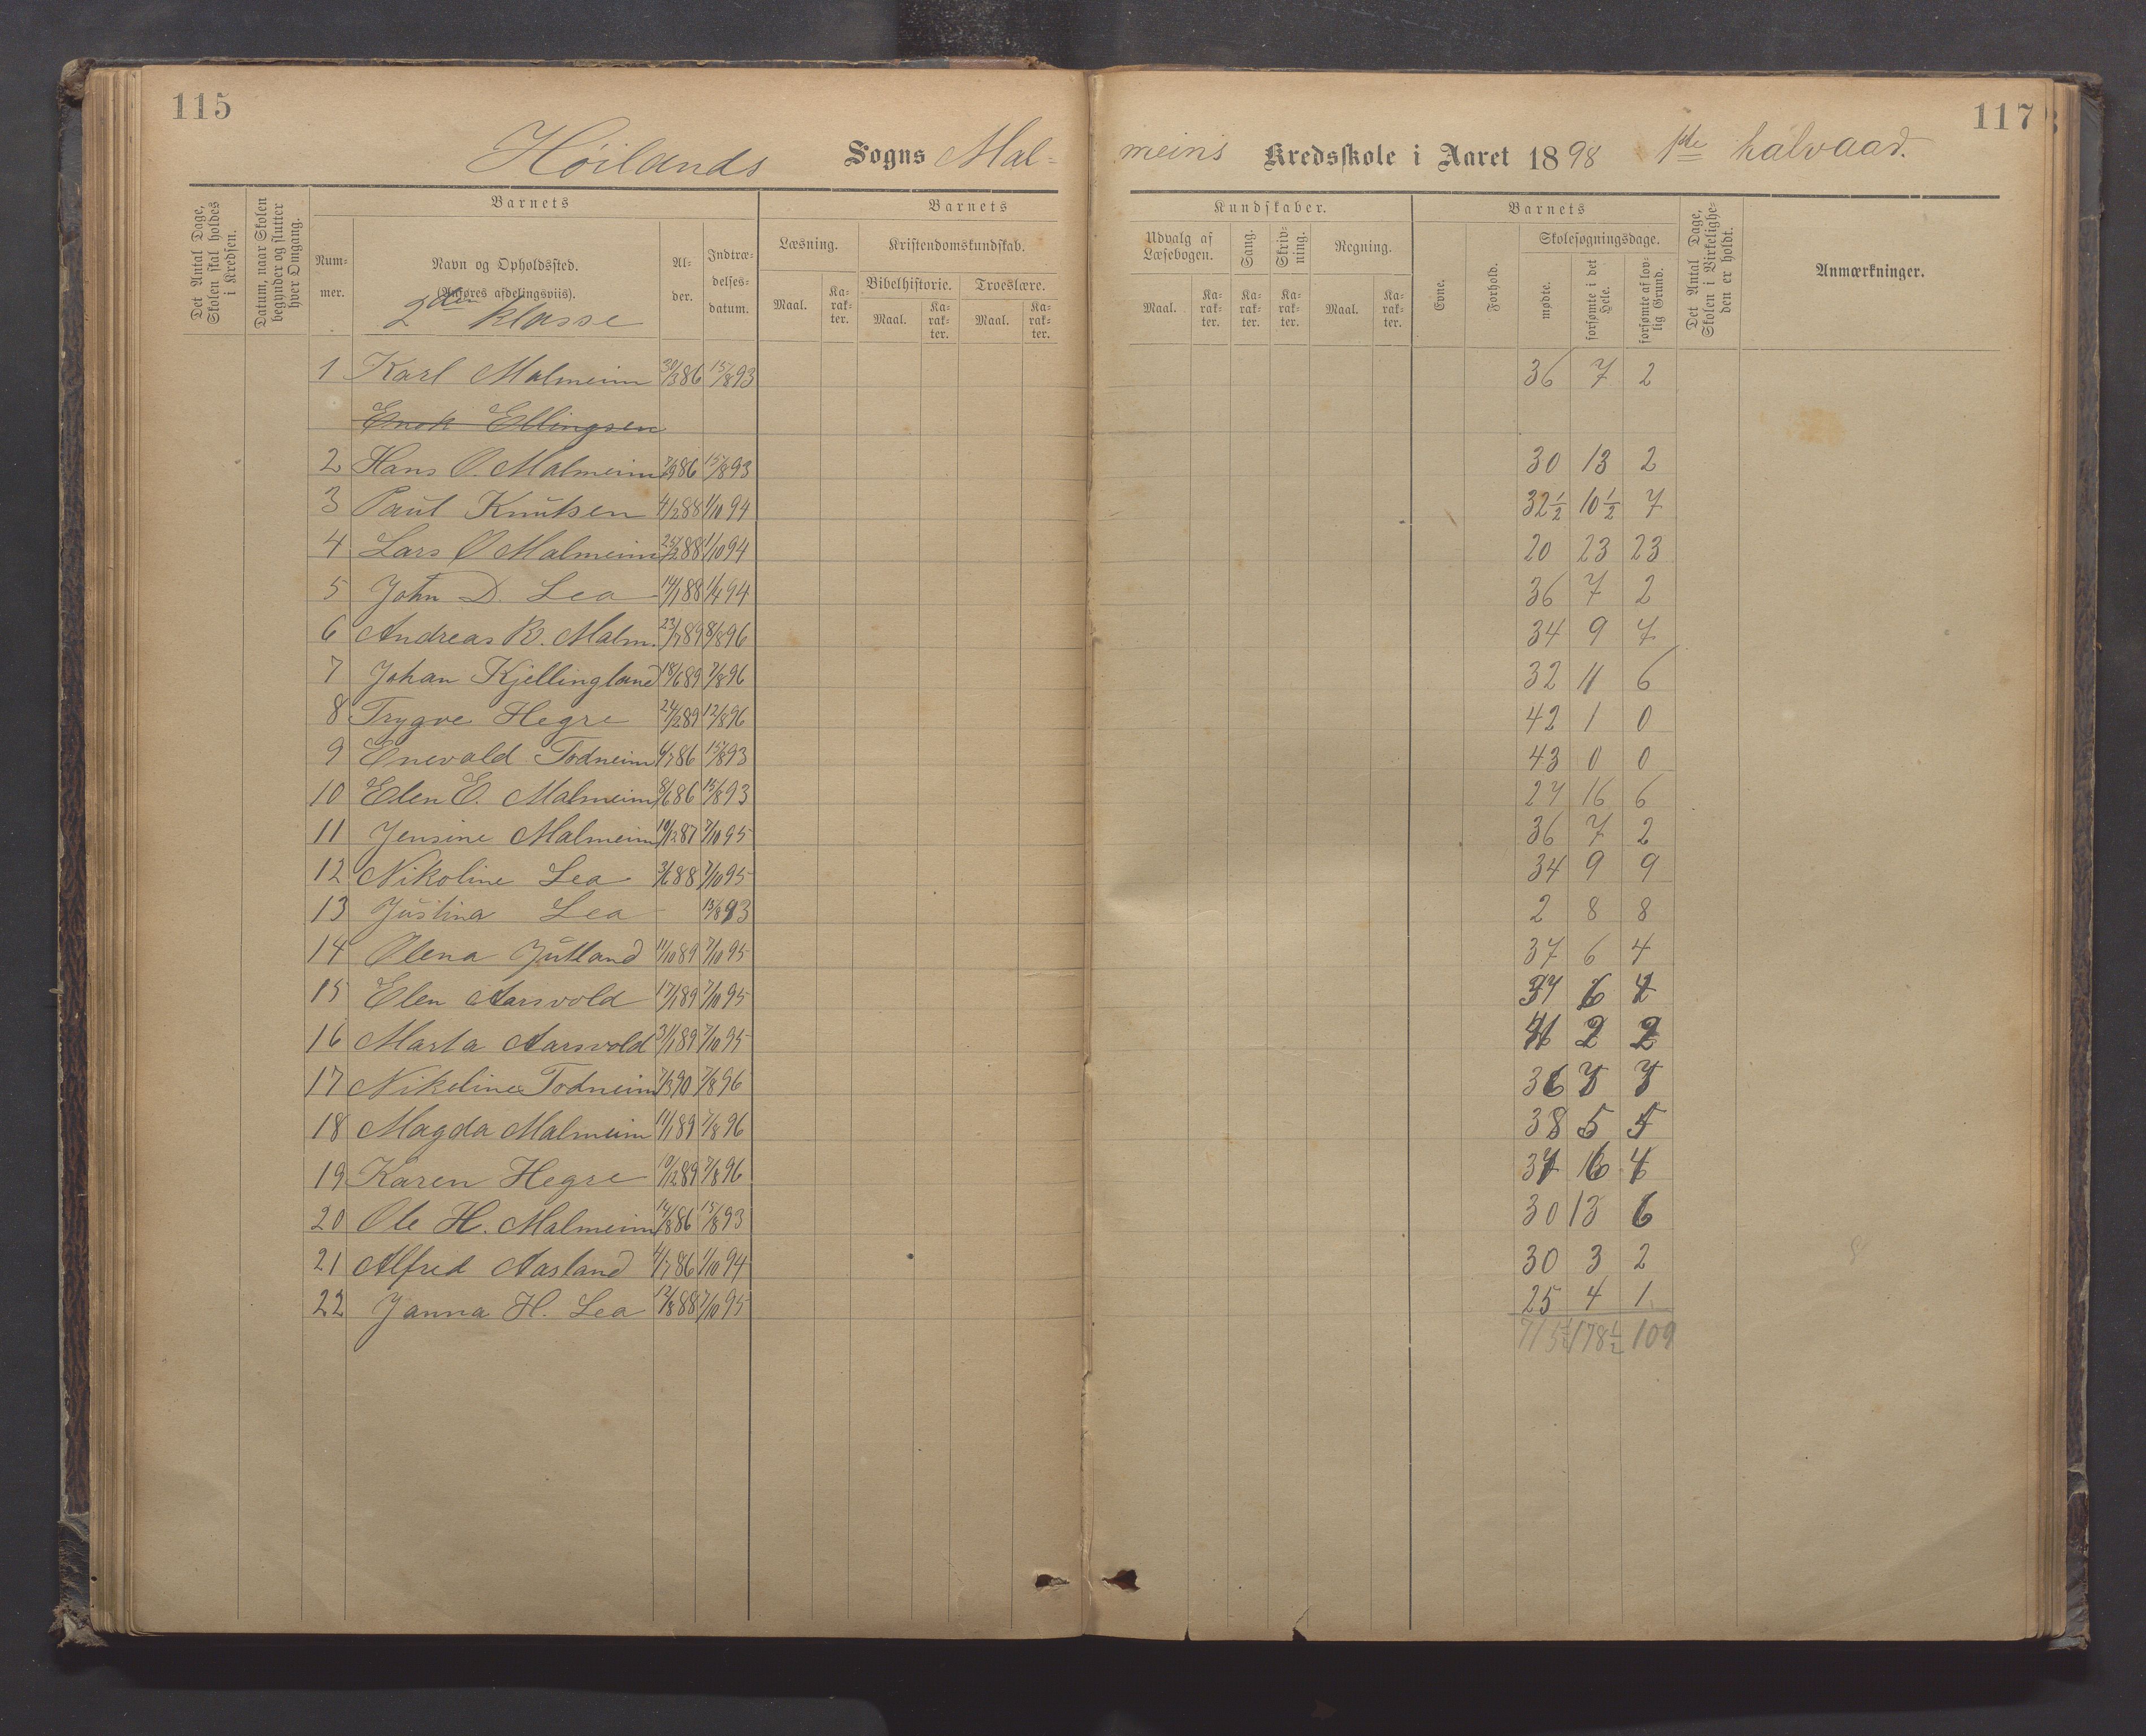 115
117
Höilands Sogns Mal-
meins Kredsskole i Aaret 1898 1ste halvaar.
Det Antal Dage, Skolen skal holdes i Kredsen.
Datum, naar Skolen begynder og slutter hver Omgang.
Barnets
Num-mer.
Navn og Opholdssted.
(Anføres afdelingsviis).
2den klasse
Al-der.
Indtræ-delses-datum.
Barnets
Læsning.
Maal. Ka-rak-ter.
Kristendomskundskab.
Bibelhistorie. Troeslære.
Maal. Ka-rak-ter. Maal. Ka-rak-ter.
Kundskaber.
Udvalg af Læsebogen.
Maal. Ka-rak-ter.
Sang. Ka-rak-ter.
Skriv-ning. Ka-rak-ter.
Regning.
Maal. Ka-rak-ter.
Barnets
Evne.
Forhold.
Skolesøgningsdage.
mødte.
forsømte i det Hele.
forsømte af lov-lig Grund.
Det Antal Dage, Skolen i Virkelighe-den er holdt.
Anmærkninger.
1 Karl Malmeim 30/3 86 15/8 93 36 7 2
Enok Ellingsen
2 Hans O. Malmeim 7/9 86 15/8 93 30 13 2
3 Paul Knutsen 4/2 88 1/10 94 32½ 10½ 7
4 Lars O Malmeim 25/2 88 1/10 94 20 23 23
5 John D. Lea 14/1 88 1/4 94 36 7 2
6 Andreas B. Malm. 23/7 89 8/8 96 34 9 7
7 Johan Kjellingland 18/6 89 7/8 96 32 11 6
8 Trygve Hegre 24/2 89 12/8 96 42 1 0
9 Enevald Todneim 4/7 86 15/8 93 43 0 0
10 Elen E. Malmeim 8/6 86 15/8 93 27 16 6
11 Jensine Malmeim 10/12 87 7/10 95 36 7 2
12 Nikoline Lea 3/6 88 7/10 95 34 9 9
13 Justina Lea 15/8 93 2 8 8
14 Olena Jutland 11/10 89 7/10 95 37 6 4
15 Elen Aarsvold 17/1 89 7/10 95 37 6 4
16 Marta Aarsvold 31/1 89 7/10 95 41 2 2
17 Nikoline Todneim 7/3 90 7/8 96 36 7 7
18 Magda Malmeim 11/1 89 7/8 96 38 5 5
19 Karen Hegre 10/12 89 7/8 96 37 6 4
20 Ole H. Malmeim 14/8 86 15/8 93 30 13 6
21 Alfred Aasland 4/7 86 1/10 94 30 3 2
22 Janna H. Lea 12/8 88 7/10 95 25 4 1
715½ 178½ 109